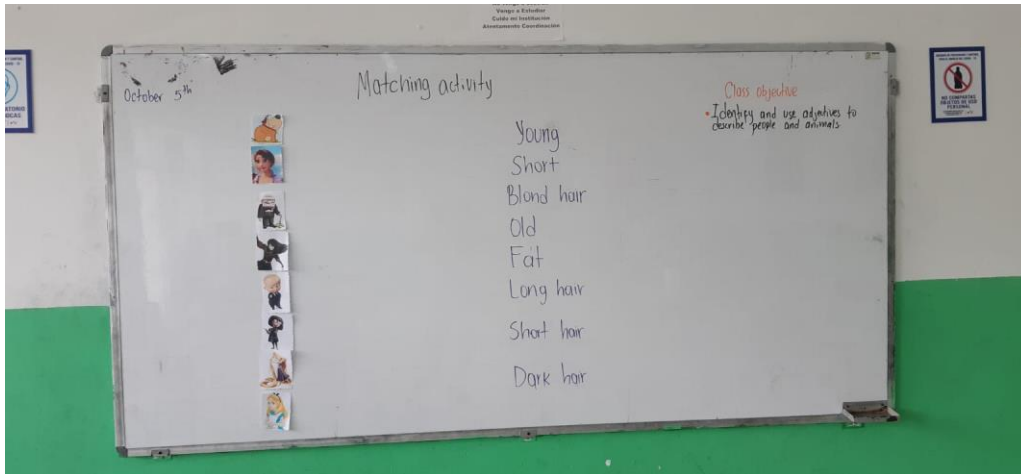 Vengo a Estudiar
Cuido mi Institución
Atentamente Coordinación
October 5th
Matching activity
Class objective
• Identify and use adjetives to
describe people and animals
Young
Short
Blond hair
Old
Fat
Long hair
Short hair
Dark hair
NO COMPARTAS
OBJETOS DE USO
PERSONAL